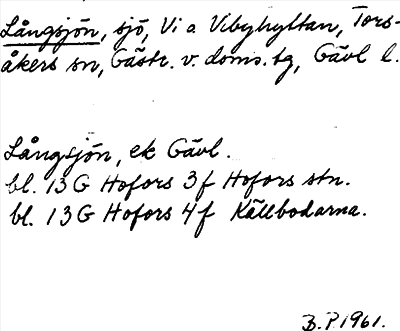 Långsjön, sjö, Vi o Vibyhyttan, Tors-
åkers sn, Gästr. v. doms. tg, Gävl l.
Långsjön, ek Gävl.
bl. 13 G Hofors 3 f Hofors stn.
bl. 13 G Hofors 4 f Källbodarna.
B.P. 1961.